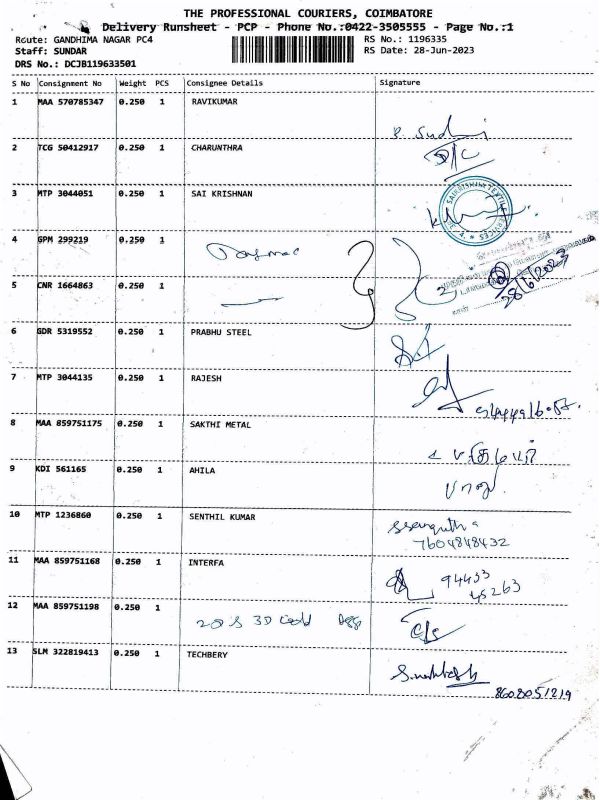 THE PROFESSIONAL COURIERS, COIMBATORE
Delivery Runsheet - PCP - Phone No.:0422-3505555 - Page No.:1
Route: GANDHIMA NAGAR PC4 RS No.: 1196335
Staff: SUNDAR RS Date: 28-Jun-2023
DRS No.: DCJB119633501
S No Consignment No Weight PCS Consignee Details Signature
1 MAA 570785347 0.250 1 RAVIKUMAR
2 TCG 50412917 0.250 1 CHARUNTHRA
3 MTP 3044051 0.250 1 SAI KRISHNAN
4 GPM 299219 0.250 1
5 CNR 1664863 0.250 1
28/6/2023
6 GDR 5319552 0.250 1 PRABHU STEEL
7 MTP 3044135 0.250 1 RAJESH
8 MAA 859751175 0.250 1 SAKTHI METAL
9 KDI 561165 0.250 1 AHILA
10 MTP 1236860 0.250 1 SENTHIL KUMAR
7604848432
11 MAA 859751168 0.250 1 INTERFA
94433
45263
12 MAA 859751198 0.250 1
13 SLM 322819413 0.250 1 TECHBERY
8608051219